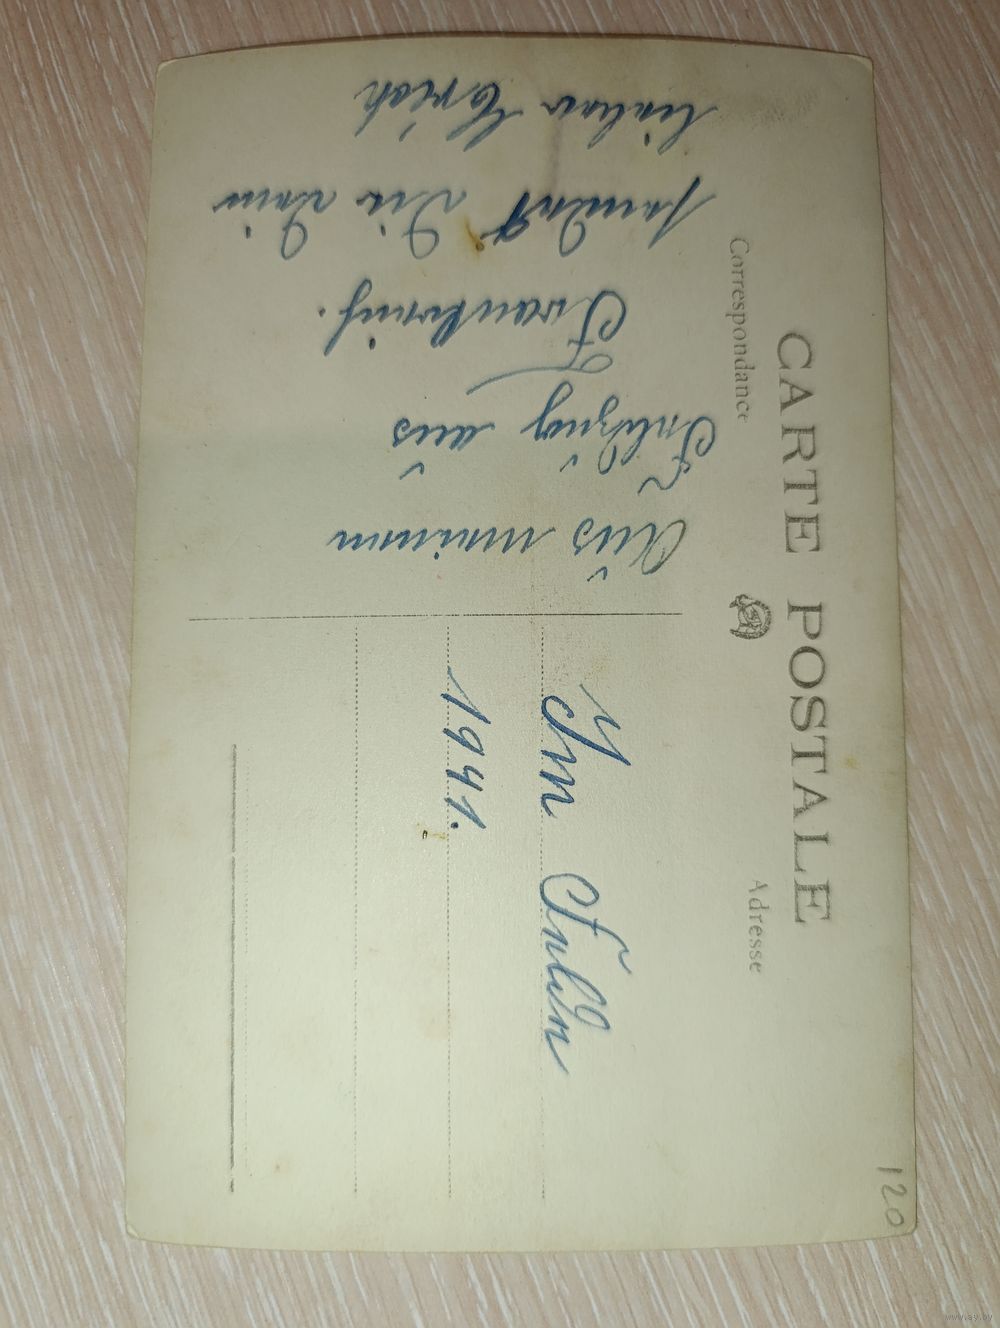 CARTE POSTALE
Correspondance
Adresse
Aus meinem
Feldzug aus
Frankreich.
sendet Dir Dein
lieber Erich
Im Felde
1941.
120
www.ay.by